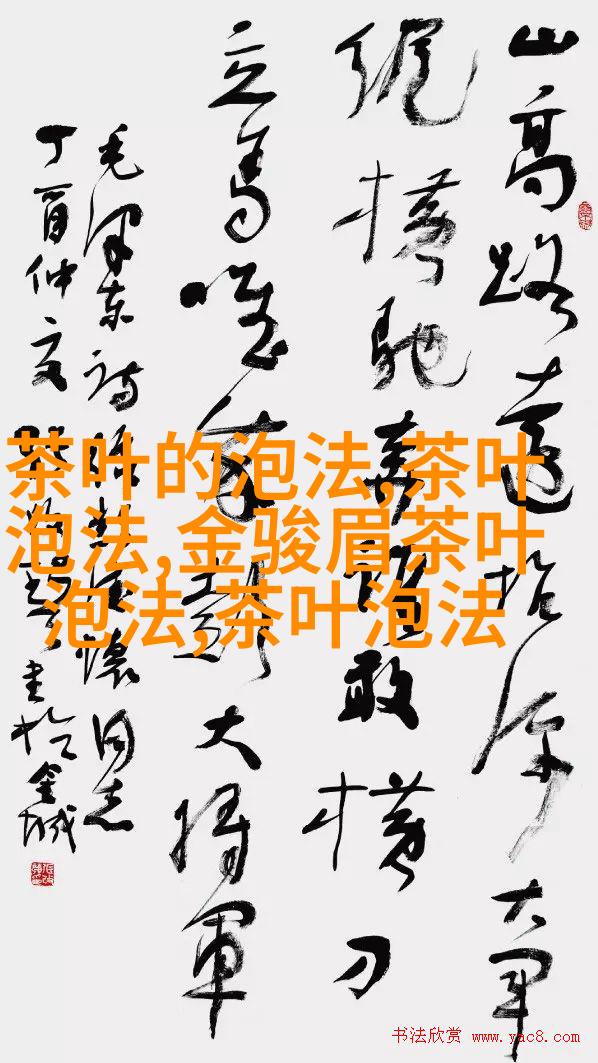 山高路遠坑深大军
纵横驰奔谁敢横刀
立马唯我彭大将軍
毛泽东诗赠彭德懷同志
丁酉仲夏书于金城
茶叶的泡法,茶叶
泡法,金骏眉茶叶
泡法,茶叶泡法
书法欣赏 www.yac8.com